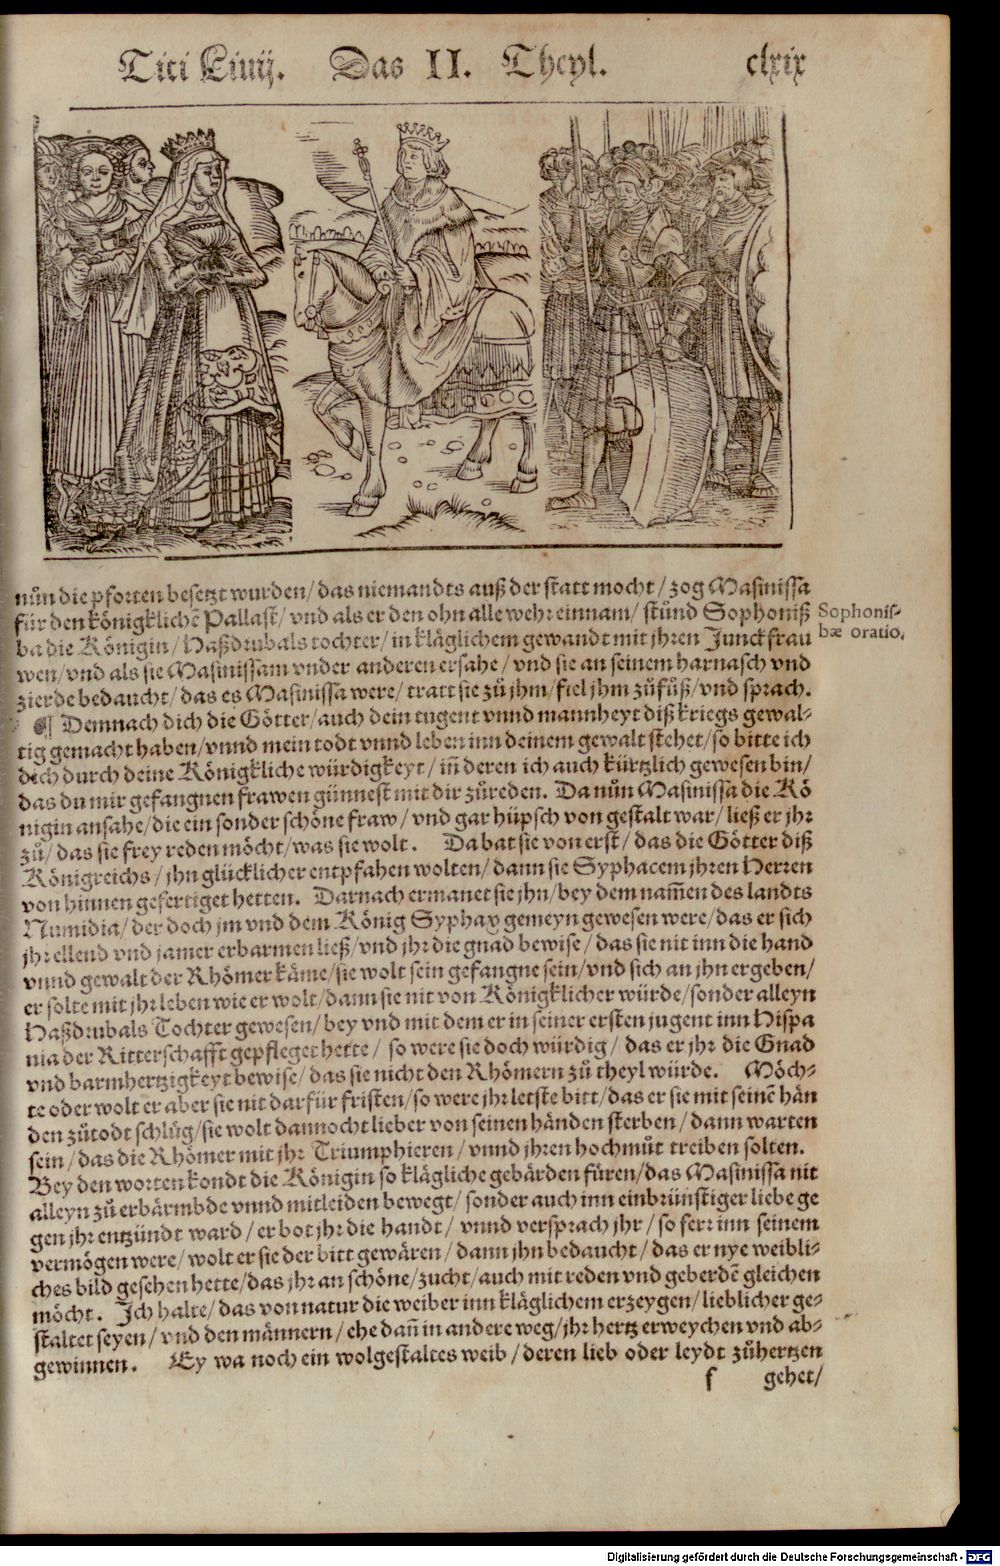 Titi Liuij. Das II. Theyl. clxix
nůn die pforten besetzt wurden/ das niemandts auß der statt mocht/ zog Masinissa
für den königklichē Pallast/ vnd als er den ohn alle wehr einnam/ stůnd Sophoniß
ba die Königin/ Haßdrubals tochter/ in kläglichem gewandt mit jhren Junckfrau
wen/ vnd als sie Masinissam vnder anderen ersahe/ vnd sie an seinem harnasch vnd
zierde bedaucht/ das es Masinissa were/ tratt sie zů jhm/ fiel jhm zůfůß/ vnd sprach.
Sophonis-
bæ oratio.
¶ Demnach dich die Götter/ auch dein tugent vnnd mannheyt diß kriegs gewal-
tig gemacht haben/ vnnd mein todt vnnd leben inn deinem gewalt stehet/ so bitte ich
dich durch deine Königkliche würdigkeyt/ iñ deren ich auch kürtzlich gewesen bin/
das du mir gefangnen frawen günnest mit dir zůreden. Da nůn Masinissa die Kö
nigin ansahe/ die ein sonder schöne fraw/ vnd gar hüpsch von gestalt war/ ließ er jhr
zů/ das sie frey reden möcht/ was sie wolt. Da bat sie von erst/ das die Götter diß
Königreichs/ jhn glücklicher entpfahen wolten/ dann sie Syphacem jhren Herren
von hinnen gefertiget hetten. Darnach ermanet sie jhn/ bey dem nam̄en des landts
Numidia/ der doch jm vnd dem König Syphax gemeyn gewesen were/ das er sich
jhr ellend vnd jamer erbarmen ließ/ vnd jhr die gnad bewise/ das sie nit inn die hand
vnnd gewalt der Rhömer käme/ sie wolt sein gefangne sein/ vnd sich an jhn ergeben/
er solte mit jhr leben wie er wolt/ dann sie nit von Königklicher würde/ sonder alleyn
Haßdrubals Tochter gewesen/ bey vnd mit dem er in seiner ersten jugent inn Hispa
nia der Ritterschafft gepfleget hette/ so were sie doch würdig/ das er jhr die Gnad
vnd barmhertzigkeyt bewise/ das sie nicht den Rhömern zů theyl würde. Möch-
te oder wolt er aber sie nit darfür fristen/ so were jhr letste bitt/ das er sie mit seinē hän
den zůtodt schlůg/ sie wolt dannocht lieber von seinen händen sterben/ dann warten
sein/ das die Rhömer mit jhr Triumphieren/ vnnd jhren hochmůt treiben solten.
Bey den worten kondt die Königin so klägliche gebärden füren/ das Masinissa nit
alleyn zů erbärmbde vnnd mitleiden bewegt/ sonder auch inn einbrünstiger liebe ge
gen jhr entzündt ward/ er bot jhr die handt/ vnnd versprach jhr/ so ferr inn seinem
vermögen were/ wolt er sie der bitt gewären/ dann jhn bedaucht/ das er nye weibli-
ches bild gesehen hette/ das jhr an schöne/ zucht/ auch mit reden vnd geberdē gleichen
möcht. Ich halte/ das von natur die weiber inn kläglichem erzeygen/ lieblicher ge-
staltet seyen/ vnd den männern/ ehe dañ in andere weg/ jhr hertz erweychen vnd ab-
gewinnen. Ey wa noch ein wolgestaltes weib/ deren lieb oder leydt zůhertzen
f gehet/
Digitalisierung gefördert durch die Deutsche Forschungsgemeinschaft - DFG